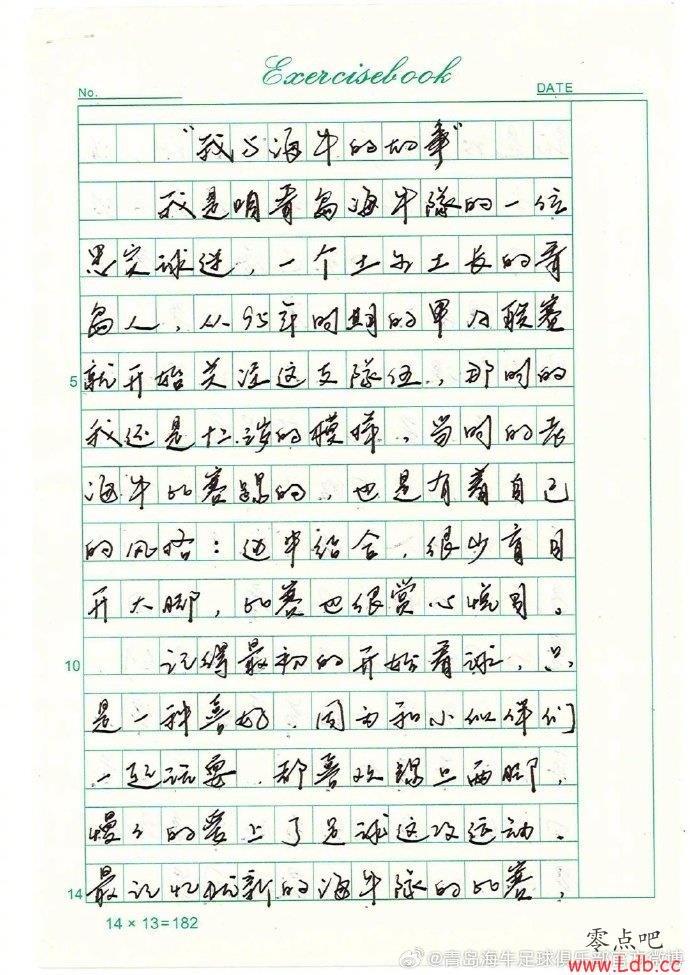 Exercisebook
No.
DATE
"我与海牛的故事"
我是咱青岛海牛队的一位
忠实球迷，一个土生土长的青
岛人，从95年时期的甲B联赛
就开始关注这支队伍，那时的
我还是十二岁的模样，当时的老
海牛比赛踢的，也是有着自己
的风格：边中结合，很少盲目
5
开大脚，比赛也很赏心悦目。
记得最初的开始看球，只
10
是一种喜好，因为和小伙伴们
一起玩耍，都喜欢踢上两脚，
慢慢的爱上了足球这项运动。
最记忆犹新的海牛队的比赛，
14
14 × 13=182
零点吧
www.Ldb.cc
@青岛海牛足球俱乐部官方微博